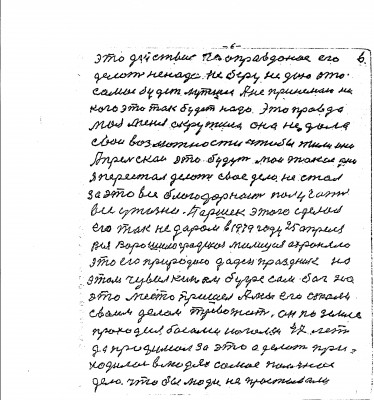 -6-
6.
это действие не оправданое его
делат ненада. Не беру не дою это
самое будит лутшия А не принемаю на
кого это так будит нада. Это правда
моя меня окружила она не дала
свои возможности чтобы тыи они
Апрехской это будут мои такое дни
Я перестал делат свое дело, не стал
за это все благодарност получат
все утизно. Паршек этого сделал
его так не даром в 1979 году 25 апрель
вся Ворошилоградская милиция охроняло
это его природно дадсы праздник на
этом чувилкиным бугре сам бог на
это место пришел А мы его стали
своим делом тревожит, он по земле
проходил босыми ногами 47 лет
да продумал за это а делат при-
ходилос в людях самое полизное
дело. что бы люди не простывали